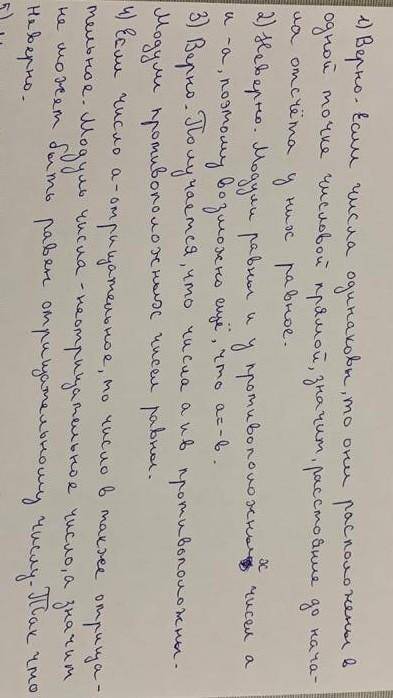 1) Верно. Если числа одинаковы, то они расположены в
одной точке числовой прямой, значит, расстояние до нача-
ла отсчёта у них равное.
2) Неверно. Модули равны и у противоположных чисел а
и -а, поэтому возможно ещё, что а=-в.
3) Верно. Получается, что числа а и в противоположны.
Модули противоположных чисел равны.
4) Если число а-отрицательное, то число в также отрица-
тельное. Модуль числа - неотрицательное число, а значит
не может быть равен отрицательному числу. Так что
неверно.
5)